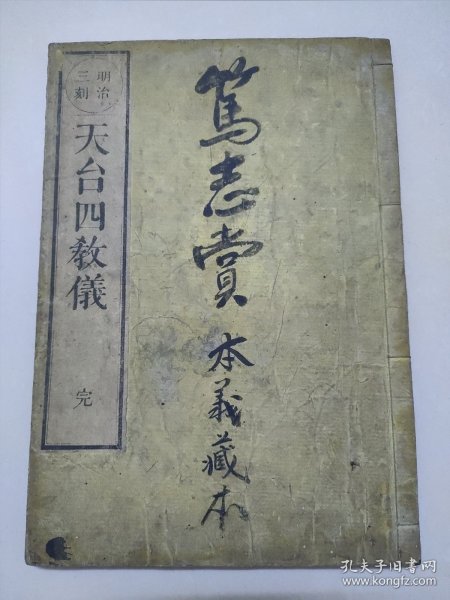 篤志賞
本義藏本
明治
三刻
天台四教儀
完
孔夫子旧书网
www.kongfz.com